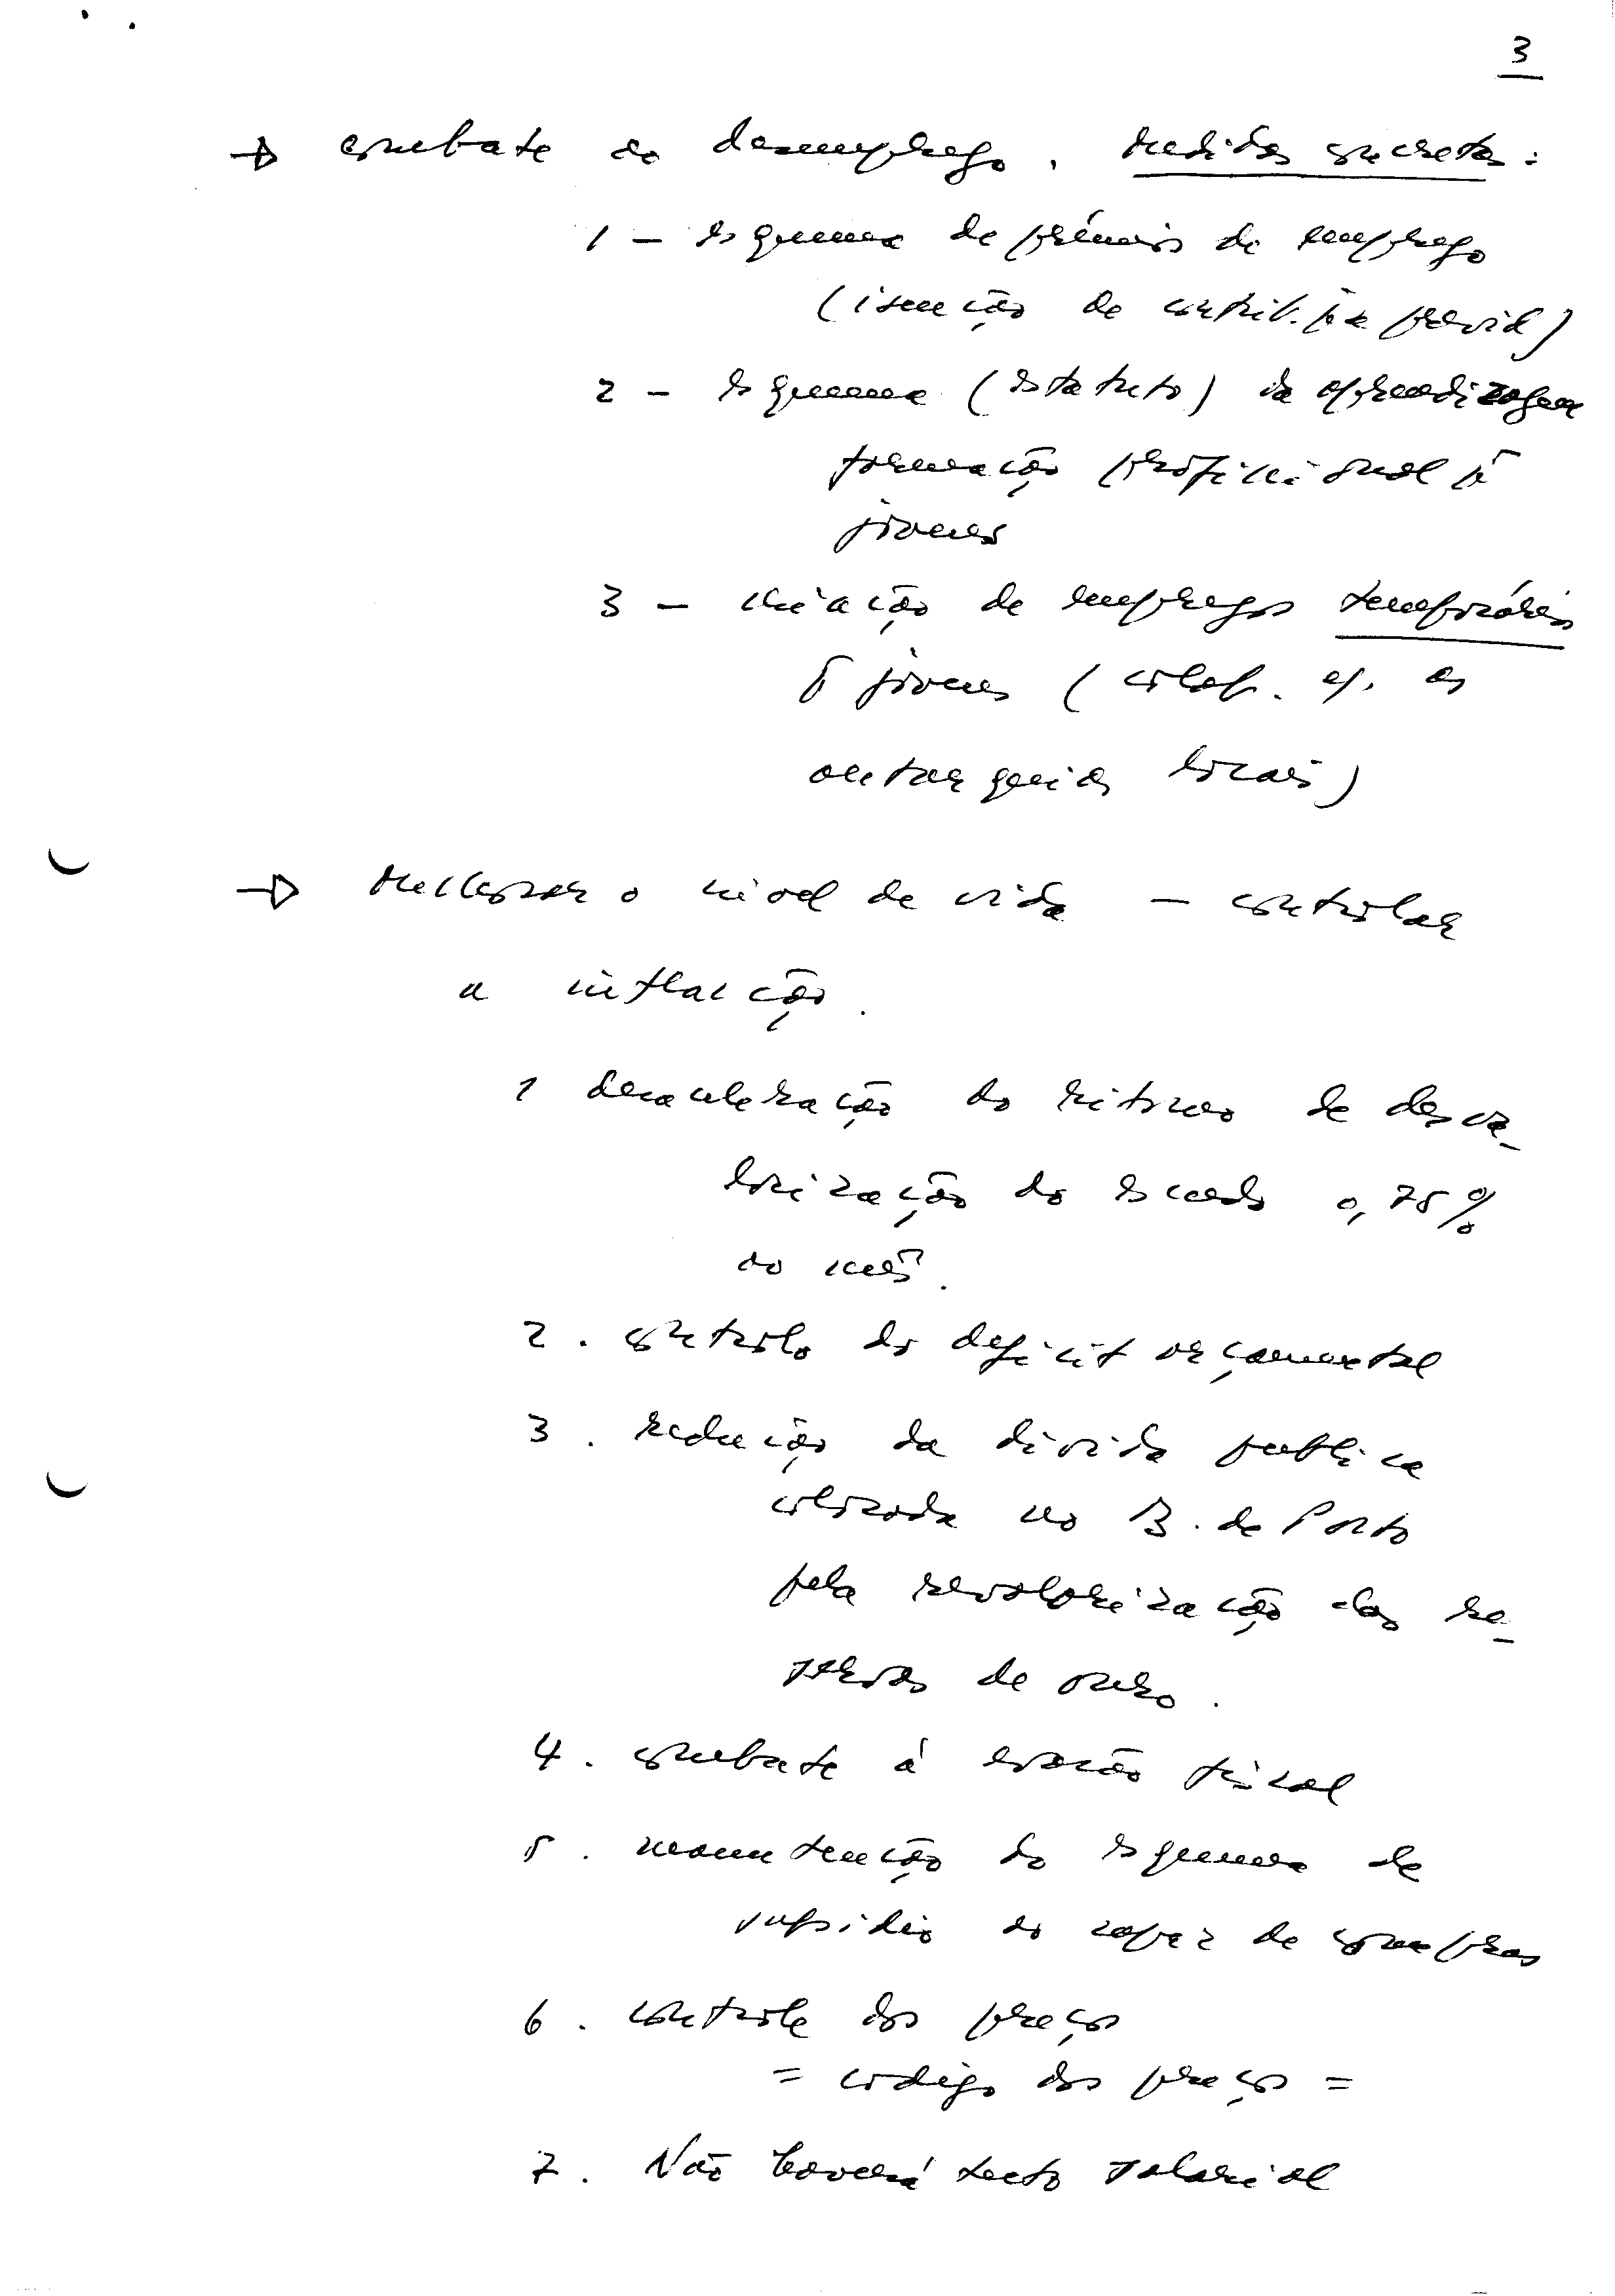 3
→ combate ao desemprego. Medidas concretas:
1 – esquema de prémios de emprego
(isenção de contrib. p/a previd)
2 – esquema (estatuto) da aprendizagem
formação profissional p/
jovens
3 – criação de empregos temporários
p/ jovens (colab. c/. as
autarquias locais)
→ Melhorar o nivel de vida – controlar
a inflacção.
1 desaceleração do ritmo de desva-
lorização do escudo 0,75%
ao mês.
2. controlo do deficit orçamental
3. redução da divida publica
colocada no B. de Porto
pela revalorização das re-
servas de ouro.
4. combate á evasão fiscal
5. manutenção do esquema de
subsidio ao cabaz de compras
6. controle dos preços
= codigo dos preços =
7. Não haverá tecto salarial